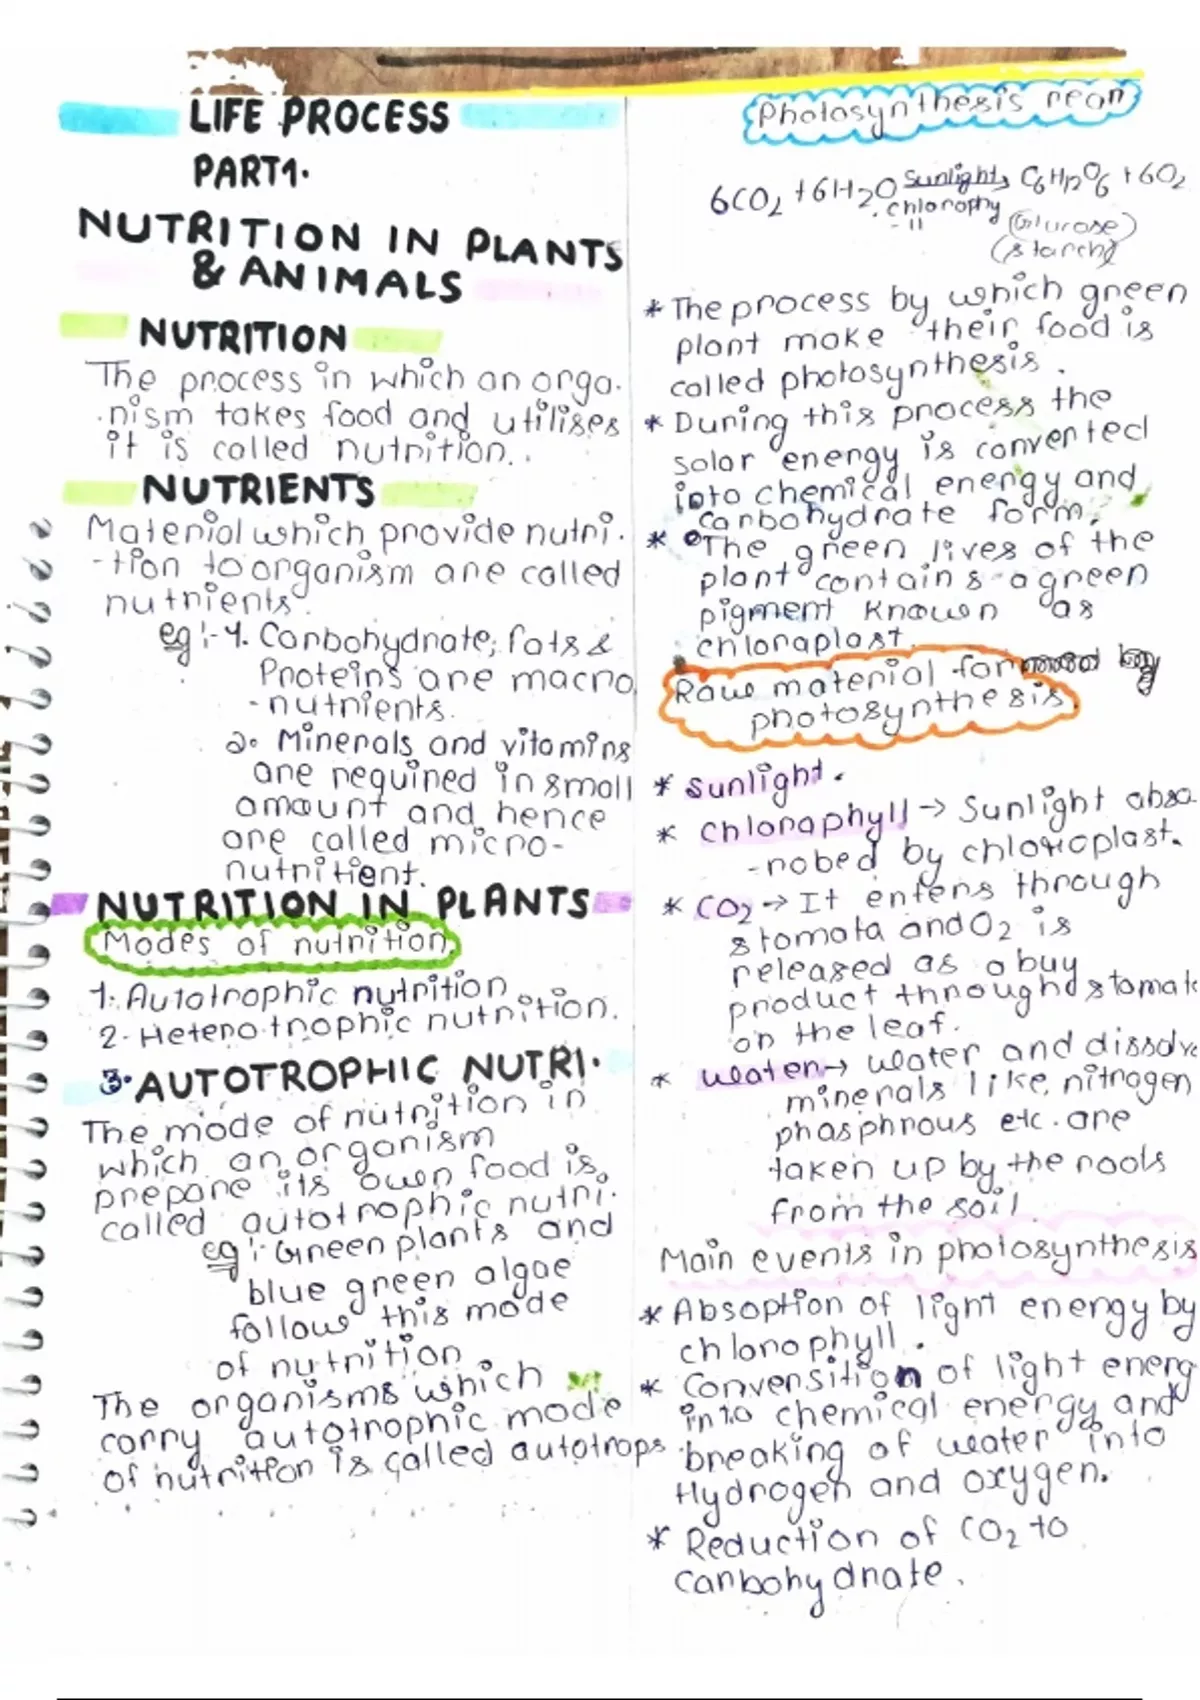 LIFE PROCESS
PART1.
NUTRITION IN PLANTS
& ANIMALS
NUTRITION
The process in which an orga-
-nism takes food and utilises
it is called nutrition.
NUTRIENTS
Material which provide nutri-
-tion to organism are called
nutrients.
eg:- 1. Carbohydrate, fats &
Proteins are macro
-nutrients.
2. Minerals and vitamins
are required in small
amount and hence
are called micro-
nutritient.
NUTRITION IN PLANTS
Modes of nutrition.
1. Autotrophic nutrition
2. Heterotrophic nutrition.
3. AUTOTROPHIC NUTRI.
The mode of nutrition in
which an organism
prepare its own food is
called autotrophic nutri.
eg:- Green plants and
blue green algae
follow this mode
of nutrition
The organisms which
carry autotrophic mode
of nutrition is called autotrops.
Photosynthesis rean
6CO2 + 6H2O Sunlight → C6H12O6 + 6O2
chlorophy
-ll
(Glurose)
(starch)
* The process by which green
plant make their food is
called photosynthesis.
* During this process the
solar energy is converted
into chemical energy and
carbohydrate form.
* The green lives of the
plant contains a green
pigment known as
chloraplast.
Raw material for by
photosynthesis.
* Sunlight.
* chloraphyll → Sunlight abso-
-robed by chloroplast.
* CO2 → It enters through
stomata and O2 is
released as a buy
product through stomate
on the leaf.
* Water → water and dissolve
minerals like, nitrogen
phasphrous etc. are
taken up by the roots
from the soil
Main events in photosynthesis
* Absoption of light energy by
chlorophyll.
* Conversition of light energ
into chemical energy and
breaking of water into
Hydrogen and oxygen.
* Reduction of CO2 to
carbohydrate.